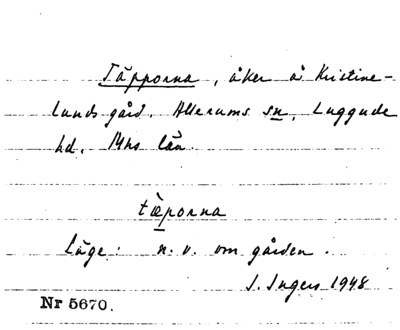 Täpporna, åker å Kristine-
lunds gård. Allerums sn, Luggude
hd. Mhs län.
tæ̀porna
Läge: n.v. om gården.
I. Ingers 1948
Nr 5670.